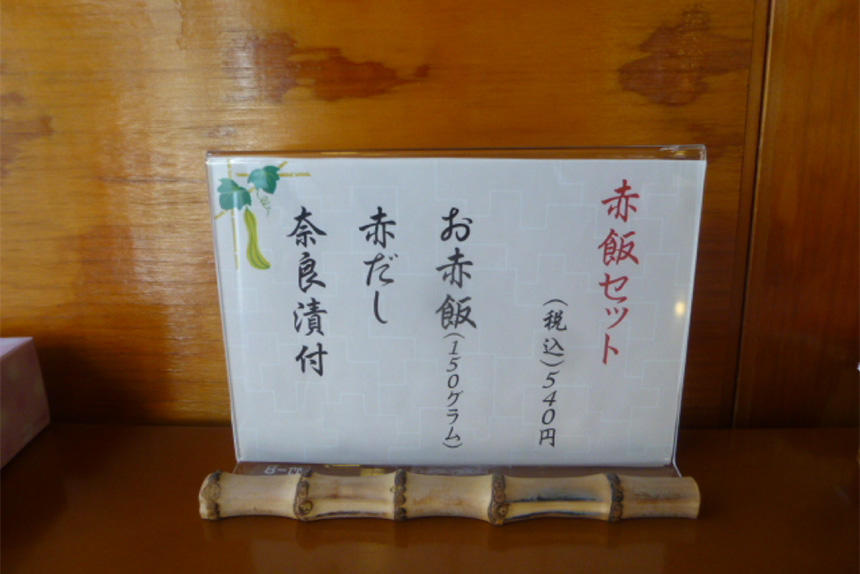 赤飯セット
(税込)540円
お赤飯(150グラム)
赤だし
奈良漬付